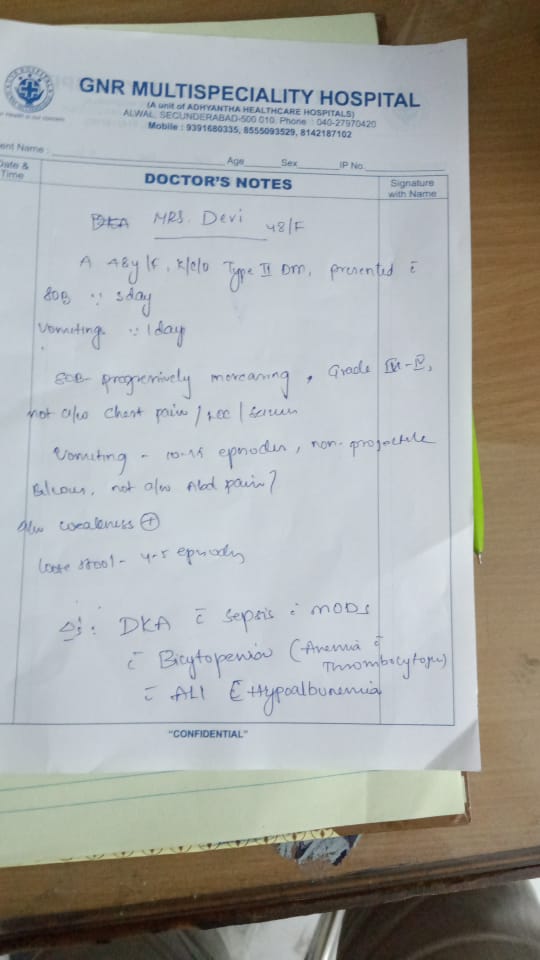 GNR MULTISPECIALITY HOSPITAL
(A unit of ADHYANTHA HEALTHCARE HOSPITALS)
ALWAL, SECUNDERABAD-500 010. Phone : 040-27970420
Mobile : 9391680335, 8555093529, 8142187102
ent Name :
Age Sex IP No.
Date & Time
DOCTOR'S NOTES
Signature with Name
DKA MRS. Devi 48/F
A 48y/F, K/C/O Type II DM, presented c̄
SOB ∵ 3day
Vomiting ∵ 1day
SOB- progressively increasing, Grade III-IV,
not a/w chest pain /
Vomiting - 10-15 episodes, non-projectile
Bilious, not a/w Abd pain?
a/w weakness ⊕
loose stool- 4-5 episodes
Δs: DKA c̄ Sepsis c̄ MODS
c̄ Bicytopenia (Anemia c̄
Thrombocytopenia)
c̄ ALI c̄ Hypoalbunemia
"CONFIDENTIAL"